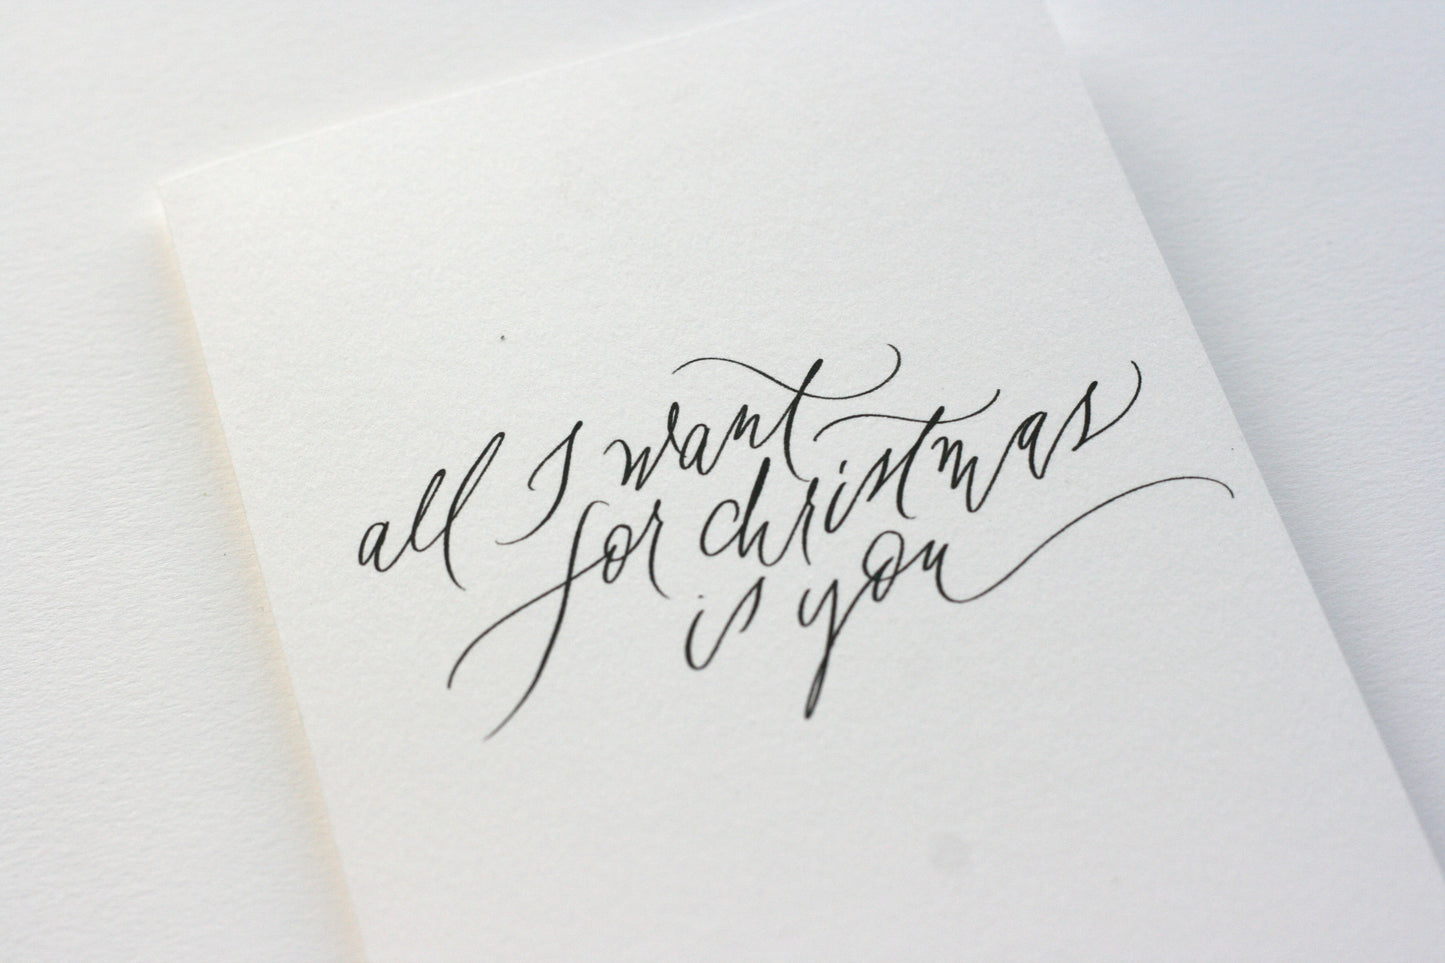 all I want
for christmas
is you